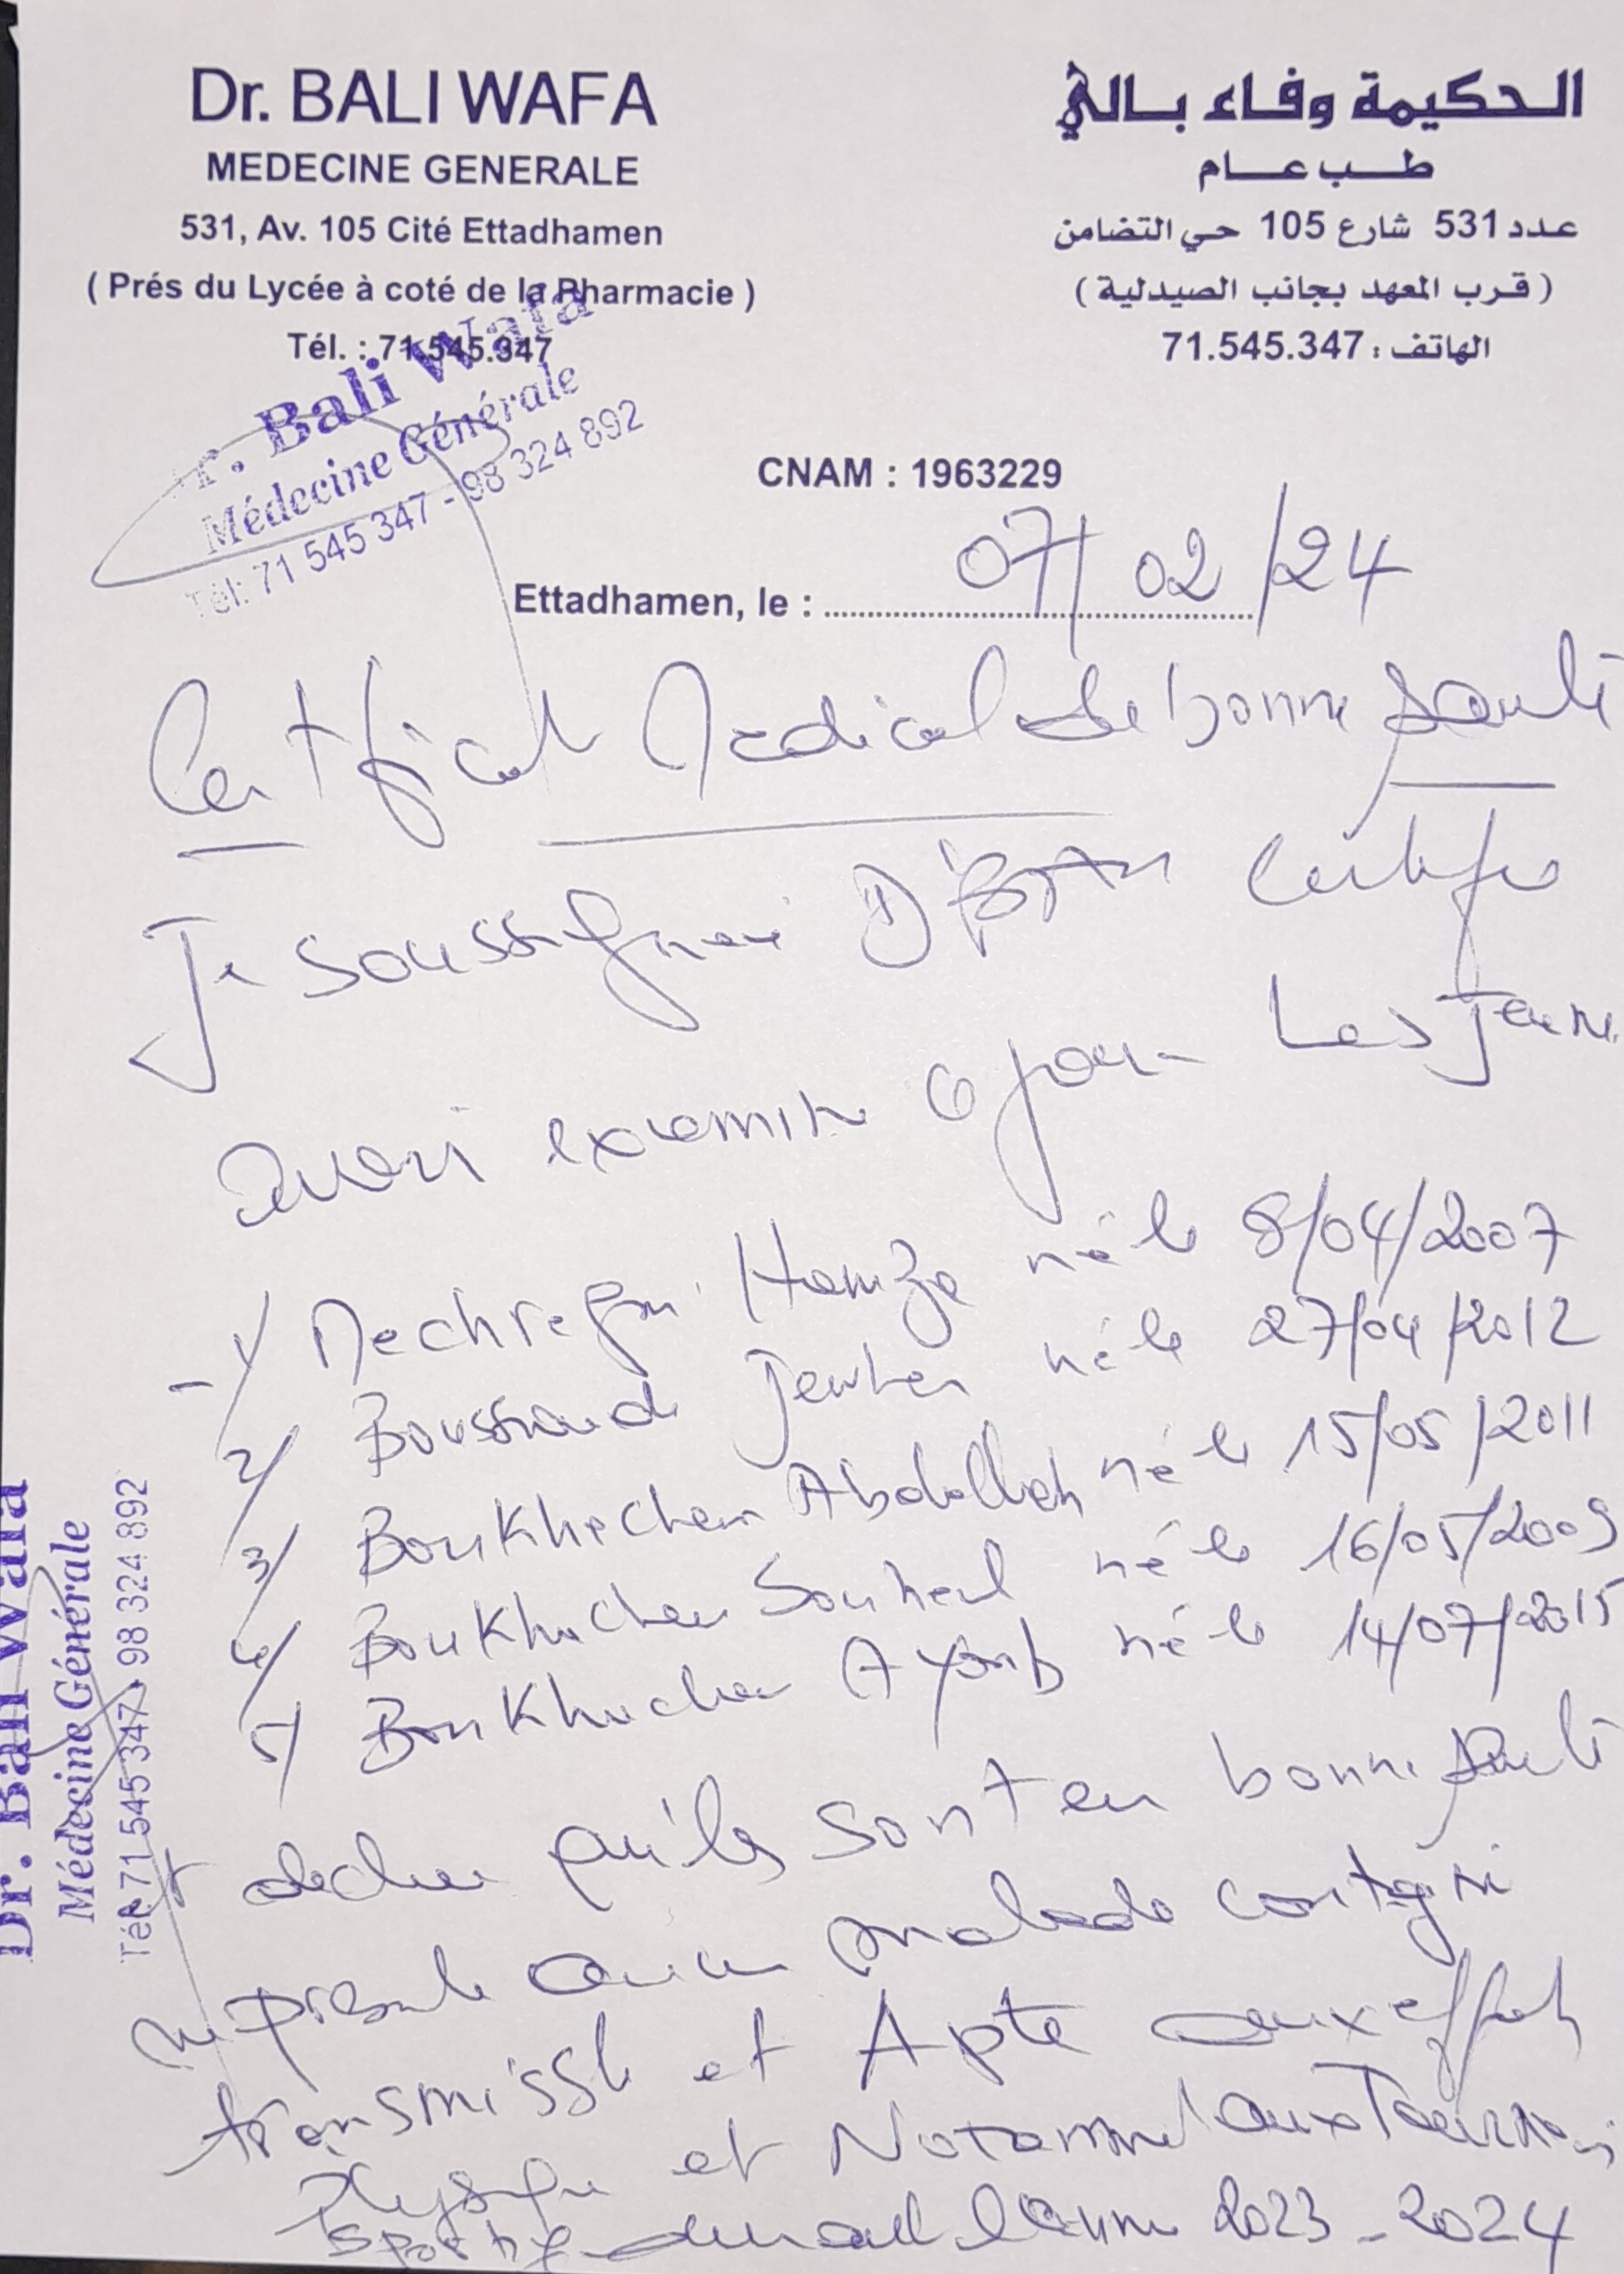 Dr. BALI WAFA
MEDECINE GENERALE
531, Av. 105 Cité Ettadhamen
( Prés du Lycée à coté de la Pharmacie )
Tél. : 71.545.347
الحكيمة وفاء بالي
طب عام
عدد 531 شارع 105 حي التضامن
( قرب المعهد بجانب الصيدلية )
الهاتف : 71.545.347
r. Bali Wafa
Médecine Générale
Tél: 71 545 347 - 98 324 892
CNAM : 1963229
Ettadhamen, le : 07/02/24
Certificat Medical de bonne santé
Je soussigné Dr certifie
avoir examiné ce jour Les Jeune
-1/ Mechregui Hamza né le 8/04/2007
2/ Jawher né le 27/04/2012
3/ Boukhechem Abdallah né le 15/05/2011
4/ Souheil né le 16/05/2009
5/ Ayoub né le 14/07/2015
et declare qu'ils sont en bonne santé
ne présente aucune maladie contagieuse
transmissible et Apte aux efforts
Physique et Notamment aux Tournois
sportif durant l'année 2023 - 2024
Dr. Bali Wafa
Médecine Générale
Tél: 71 545 347 - 98 324 892